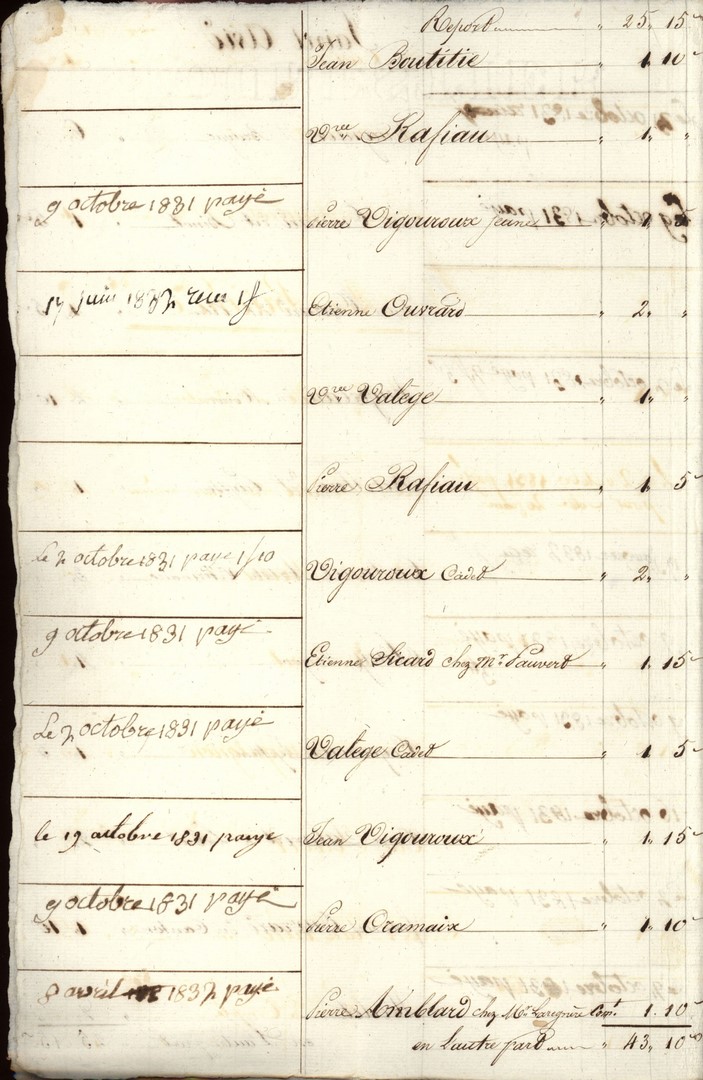 Report " 25, 15
Jean Boutitie " 1, 10
Vve Rafiau " 1, "
9 octobre 1831 payé
Pierre Vigouroux jeune " 1,
17 juin 1832 reçu 1f
Etienne Ouvrard " 2, "
Vve Valège " 1, "
Pierre Rafiau " 1, 5
Le 2 octobre 1831 payé 1f10
Vigouroux Cadet " 2, "
9 octobre 1831 payé
Etienne Sicard chez Mr Pauvert " 1, 15
Le 2 octobre 1831 payé
Valège Cadet " 1, 5
le 19 octobre 1831 payé
Jean Vigouroux " 1, 15
9 octobre 1831 payé
Pierre Cramaix " 1, 10
8 avril 1832 payé
Pierre Amblard chez Mr 1, 10
en l'autre part " 43, 10